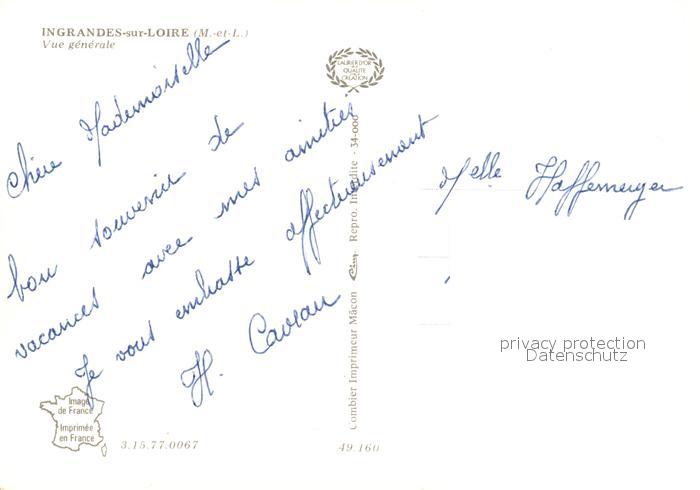 INGRANDES-sur-LOIRE (M.-et-L.)
Vue générale
LAURIER D'OR
DE LA
QUALITÉ
CRÉATION
Chère Mademoiselle
bon souvenir de
vacances avec mes amitiés
Je vous embrasse affectueusement
H. Caveau
Combier Imprimeur Mâcon Cim Repro. Interdite - 34-000
Melle Haffemeyer
privacy protection
Datenschutz
Image
de France
Imprimée
en France
3.15.77.0067
49.160